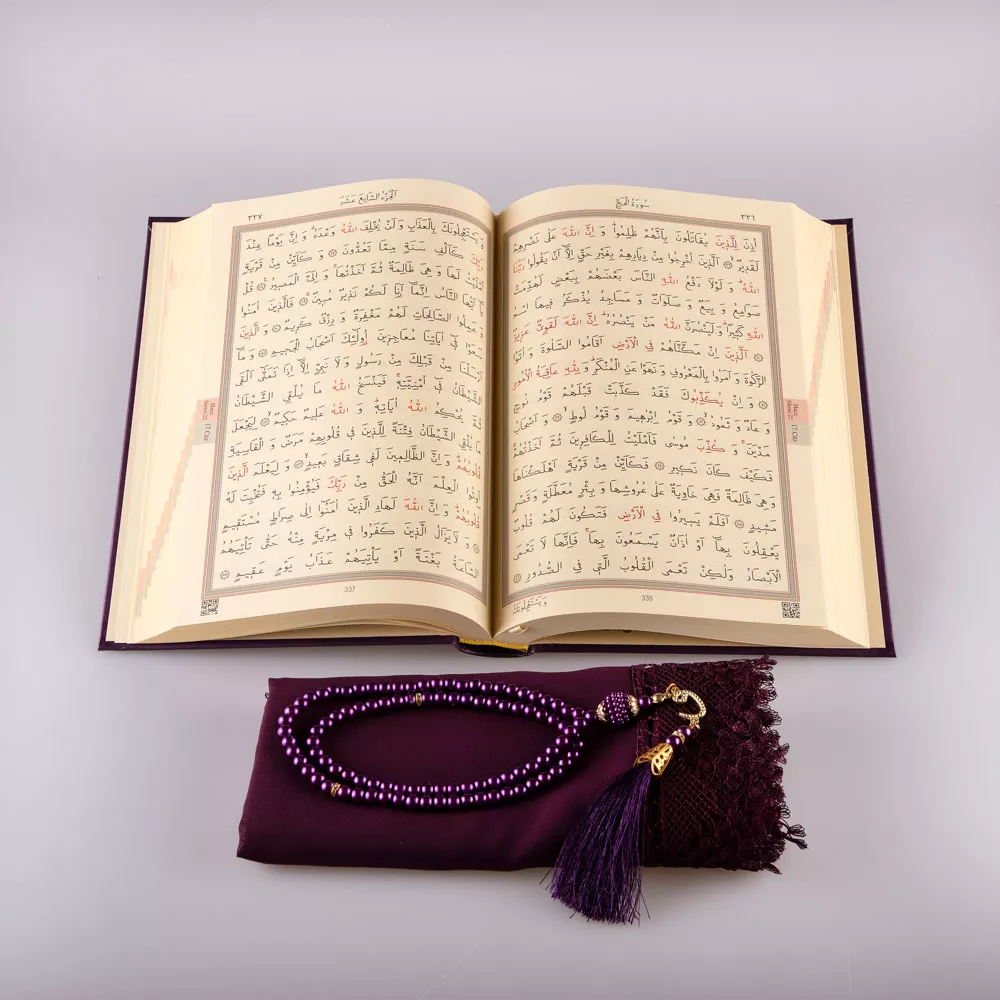 سُورَةُ الْحَجِّ ٣٣٦
اُذِنَ لِلَّذِينَ يُقَاتَلُونَ بِاَنَّهُمْ ظُلِمُوا وَ اِنَّ اللّٰهَ عَلٰى نَصْرِهِمْ
لَقَدِيرٌ ۞ اَلَّذِينَ اُخْرِجُوا مِنْ دِيَارِهِمْ بِغَيْرِ حَقٍّ اِلَّا اَنْ يَقُولُوا رَبُّنَا
اللّٰهُ وَ لَوْلَا دَفْعُ اللّٰهِ النَّاسَ بَعْضَهُمْ بِبَعْضٍ لَهُدِّمَتْ
صَوَامِعُ وَ بِيَعٌ وَ صَلَوَاتٌ وَ مَسَاجِدُ يُذْكَرُ فِيهَا اسْمُ
اللّٰهِ كَثِيرًا وَ لَيَنْصُرَنَّ اللّٰهُ مَنْ يَنْصُرُهُ اِنَّ اللّٰهَ لَقَوِيٌّ عَزِيزٌ
۞ اَلَّذِينَ اِنْ مَكَّنَّاهُمْ فِي الْاَرْضِ اَقَامُوا الصَّلٰوةَ وَ اٰتَوُا
الزَّكٰوةَ وَ اَمَرُوا بِالْمَعْرُوفِ وَ نَهَوْا عَنِ الْمُنْكَرِ وَ لِلّٰهِ عَاقِبَةُ الْاُمُورِ
۞ وَ اِنْ يُكَذِّبُوكَ فَقَدْ كَذَّبَتْ قَبْلَهُمْ قَوْمُ نُوحٍ
وَ عَادٌ وَ ثَمُودُ ۞ وَ قَوْمُ اِبْرٰهِيمَ وَ قَوْمُ لُوطٍ ۞ وَ اَصْحَابُ
مَدْيَنَ وَ كُذِّبَ مُوسٰى فَاَمْلَيْتُ لِلْكَافِرِينَ ثُمَّ اَخَذْتُهُمْ
فَكَيْفَ كَانَ نَكِيرِ ۞ فَكَاَيِّنْ مِنْ قَرْيَةٍ اَهْلَكْنَاهَا
وَ هِيَ ظَالِمَةٌ فَهِيَ خَاوِيَةٌ عَلٰى عُرُوشِهَا وَ بِئْرٍ مُعَطَّلَةٍ وَ قَصْرٍ
مَشِيدٍ ۞ اَفَلَمْ يَسِيرُوا فِي الْاَرْضِ فَتَكُونَ لَهُمْ قُلُوبٌ
يَعْقِلُونَ بِهَا اَوْ اٰذَانٌ يَسْمَعُونَ بِهَا فَاِنَّهَا لَا تَعْمَى
الْاَبْصَارُ وَلٰكِنْ تَعْمَى الْقُلُوبُ الَّتِي فِي الصُّدُورِ ۞
وَيَسْتَعْجِلُونَكَ
336
Hac
Sûresi 22
17.Cüz
٣٣٧ اَلْجُزْءُ السَّابِعَ عَشَرَ
وَ يَسْتَعْجِلُونَكَ بِالْعَذَابِ وَ لَنْ يُخْلِفَ اللّٰهُ وَعْدَهُ وَ اِنَّ يَوْمًا عِنْدَ
رَبِّكَ كَاَلْفِ سَنَةٍ مِمَّا تَعُدُّونَ ۞ وَ كَاَيِّنْ مِنْ قَرْيَةٍ
اَمْلَيْتُ لَهَا وَ هِيَ ظَالِمَةٌ ثُمَّ اَخَذْتُهَا وَ اِلَيَّ الْمَصِيرُ ۞ قُلْ
يَا اَيُّهَا النَّاسُ اِنَّمَا اَنَا لَكُمْ نَذِيرٌ مُبِينٌ ۞ فَالَّذِينَ اٰمَنُوا
وَ عَمِلُوا الصَّالِحَاتِ لَهُمْ مَغْفِرَةٌ وَ رِزْقٌ كَرِيمٌ ۞ وَ الَّذِينَ
سَعَوْا فِي اٰيَاتِنَا مُعَاجِزِينَ اُولٰئِكَ اَصْحَابُ الْجَحِيمِ ۞ وَ مَا
اَرْسَلْنَا مِنْ قَبْلِكَ مِنْ رَسُولٍ وَ لَا نَبِيٍّ اِلَّا اِذَا تَمَنّٰى اَلْقَى
الشَّيْطَانُ فِي اُمْنِيَّتِهِ فَيَنْسَخُ اللّٰهُ مَا يُلْقِي الشَّيْطَانُ
ثُمَّ يُحْكِمُ اللّٰهُ اٰيَاتِهِ وَ اللّٰهُ عَلِيمٌ حَكِيمٌ ۞ لِيَجْعَلَ
مَا يُلْقِي الشَّيْطَانُ فِتْنَةً لِلَّذِينَ فِي قُلُوبِهِمْ مَرَضٌ وَ الْقَاسِيَةِ
قُلُوبُهُمْ وَ اِنَّ الظَّالِمِينَ لَفِي شِقَاقٍ بَعِيدٍ ۞ وَ لِيَعْلَمَ الَّذِينَ
اُوتُوا الْعِلْمَ اَنَّهُ الْحَقُّ مِنْ رَبِّكَ فَيُؤْمِنُوا بِهِ فَتُخْبِتَ لَهُ
قُلُوبُهُمْ وَ اِنَّ اللّٰهَ لَهَادِ الَّذِينَ اٰمَنُوا اِلٰى صِرَاطٍ مُسْتَقِيمٍ
۞ وَ لَا يَزَالُ الَّذِينَ كَفَرُوا فِي مِرْيَةٍ مِنْهُ حَتّٰى تَأْتِيَهُمُ
السَّاعَةُ بَغْتَةً اَوْ يَأْتِيَهُمْ عَذَابُ يَوْمٍ عَقِيمٍ ۞
337
Hac
Sûresi 22
17.Cüz